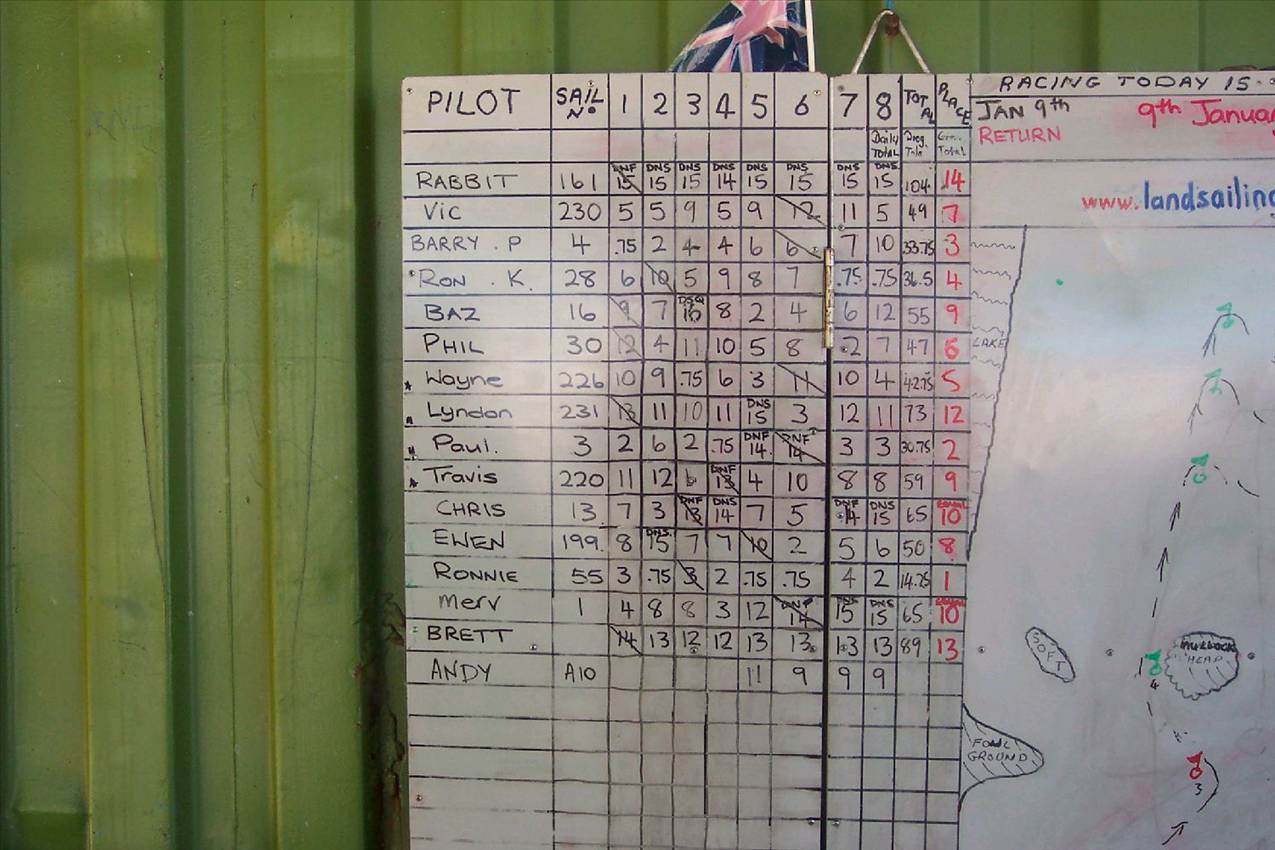 PILOT SAIL No 1 2 3 4 5 6 7 8 TOTAL PLACE
Daily TOTAL Prog Total TOTAL
RABBIT 161 DNF 15 DNS 15 DNS 15 DNS 14 DNS 15 DNS 15 DNS 15 DNS 15 104 14
Vic 230 5 5 9 5 9 12 11 5 49 7
BARRY . P 4 .75 2 4 4 6 6 7 10 33.75 3
RON . K. 28 6 10 5 9 8 7 .75 .75 36.5 4
BAZ 16 9 7 DSQ 16 8 2 4 6 12 55 9
PHIL 30 12 4 11 10 5 8 2 7 47 6
Wayne 226 10 9 .75 6 3 11 10 4 42.75 5
Lyndon 231 13 11 10 11 DNS 15 3 12 11 73 12
Paul. 3 2 6 2 .75 DNF 14 DNF 14 3 3 30.75 2
Travis 220 11 12 6 DNF 13 4 10 8 8 59 9
CHRIS 13 7 3 DNF 13 DNS 14 7 5 DNF 14 DNS 15 65 EQUAL 10
EWEN 199 8 DNS 15 7 7 10 2 5 6 50 8
RONNIE 55 3 .75 3 2 .75 .75 4 2 14.25 1
Merv 1 4 8 8 3 12 DNF 14 DNS 15 DNS 15 65 EQUAL 10
BRETT 14 13 12 12 13 13 13 13 89 13
ANDY A10 11 9 9 9
RACING TODAY 15.
JAN 9th 9th Januar
RETURN
www.landsailing
LAKE
SOFT
HEAP
4
FOUL
GROUND
3